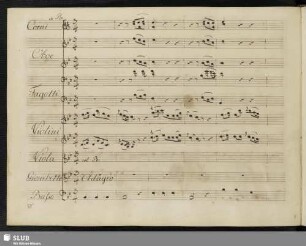 Corni
Oboe
Fagotti
Violini
Viola
Adagio
Basso
SLUB
Wir führen Wissen.